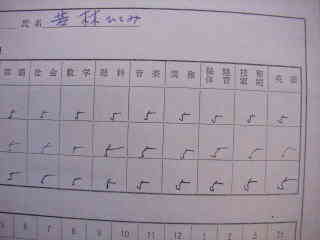 氏名 若林ひとみ
国語 社会 数学 理科 音楽 美術 保健体育 技術家庭 英語
5 5 5 5 5 5 5 5 5
5 5 5 5 5 5 5 5 5
5 5 5 5 5 5 5 5 5
6 7 8 9 10 11 12 1 2